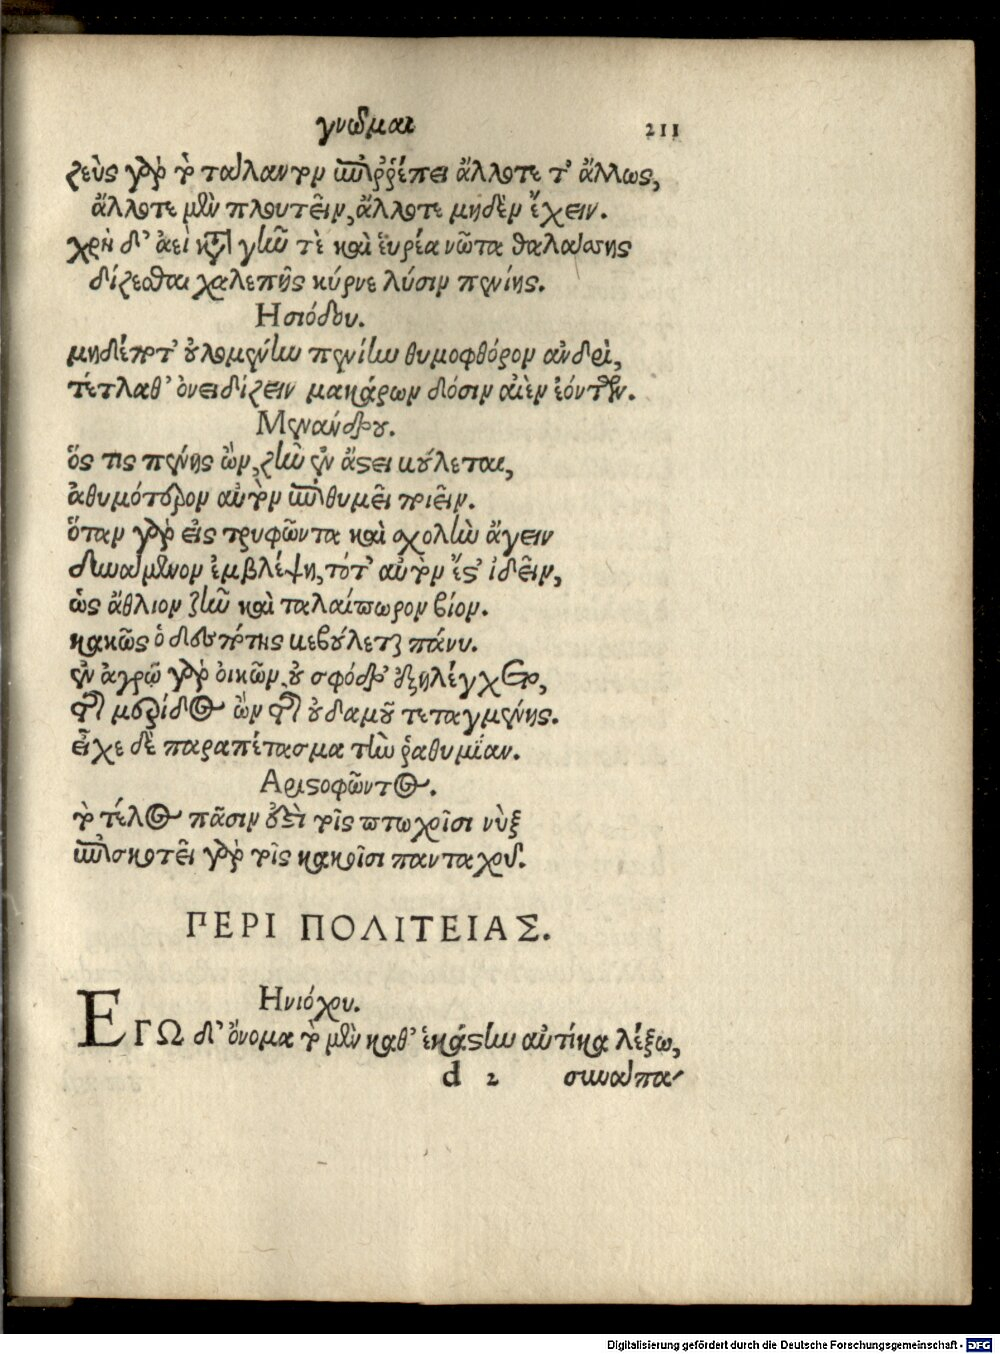 γνῶμαι 211
ζεὺς γὰρ τὸ τάλαντον ἐπιῤῥέπει ἄλλοτε τ' ἄλλως,
ἄλλοτε μὲν πλουτεῖν, ἄλλοτε μηδὲν ἔχειν.
χρὴ δ' ἀεὶ κατὰ γῆν τὲ καὶ εὐρέα νῶτα θαλάσσης
δίζεσθαι χαλεπῆς κύρνε λύσιν πενίης.
Ησιόδου.
μηδέποτ' οὐλομένην πενίην θυμοφθόρον ανδρὶ,
τέτλαθ' ὀνειδίζειν μακάρων δόσιν αἰὲν ἐόντων.
Μενάνδρου.
ὅς τις πένης ὢν, ζῆν ἐν ἄστει βούλεται,
ἀθυμότερον αὐτὸν ἐπιθυμεῖ ποιεῖν.
ὅταν γὰρ εἰς τρυφῶντα καὶ σχολὴν ἄγειν
δυνάμενον ἐμβλέψη, τότ' αὐτὸν ἔστ' ἰδεῖν,
ὡς ἄθλιον ζῆν καὶ ταλαίπωρον βίον.
κακῶς ὁ δεσπότης βεβούλεται πάνυ.
ἐν ἀγρῷ γὰρ οἰκῶν, οὐ σφόδρ' ἐξηλέγχετο,
τῆς μερίδος ὢν τῆς οὐδαμοῦ τεταγμένης.
εἶχε δὲ παραπέτασμα τὴν ῥαθυμίαν.
Αριστοφῶντος.
τὸ τέλος πᾶσιν οὖστὶ τοῖς πτωχοῖσι νὺξ
ἐπισκοτεῖ γὰρ τοῖς κακοῖσι πανταχοῦ.
ΠΕΡΙ ΠΟΛΙΤΕΙΑΣ.
Ηνιόχου.
ΕΓΩ δ' ὄνομα τὸ μὲν καθ' ἑκάστην αὐτίκα λέξω,
d 2 συνάπα-
Digitalisierung gefördert durch die Deutsche Forschungsgemeinschaft - DFG